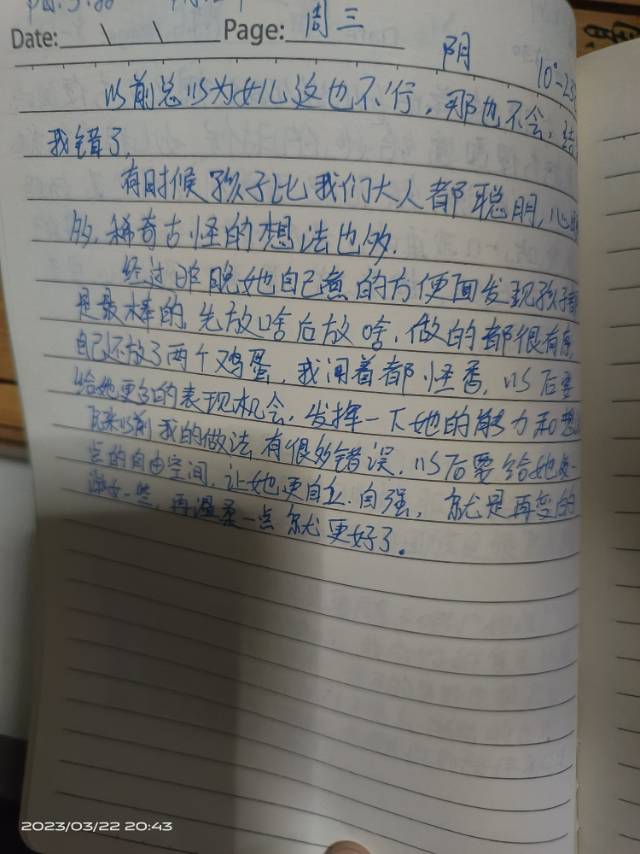 Date: Page: 周三
阴 10°-23°
以前总以为女儿这也不行，那也不会，结
我错了，
有时候孩子比我们大人都聪明，心眼
够，稀奇古怪的想法也够，
经过昨晚她自己煮的方便面发现孩子都
是最棒的，先放啥后放啥，做的都很有序，
自己还放了两个鸡蛋，我闻着都怪香，以后要
给她更多的表现机会，发挥一下她的能力和想
以前我的做法有很多错误，以后要给她多一
点的自由空间，让她更自立.自强，就是再变的
淑女一些，再温柔一点就更好了。
2023/03/22 20:43